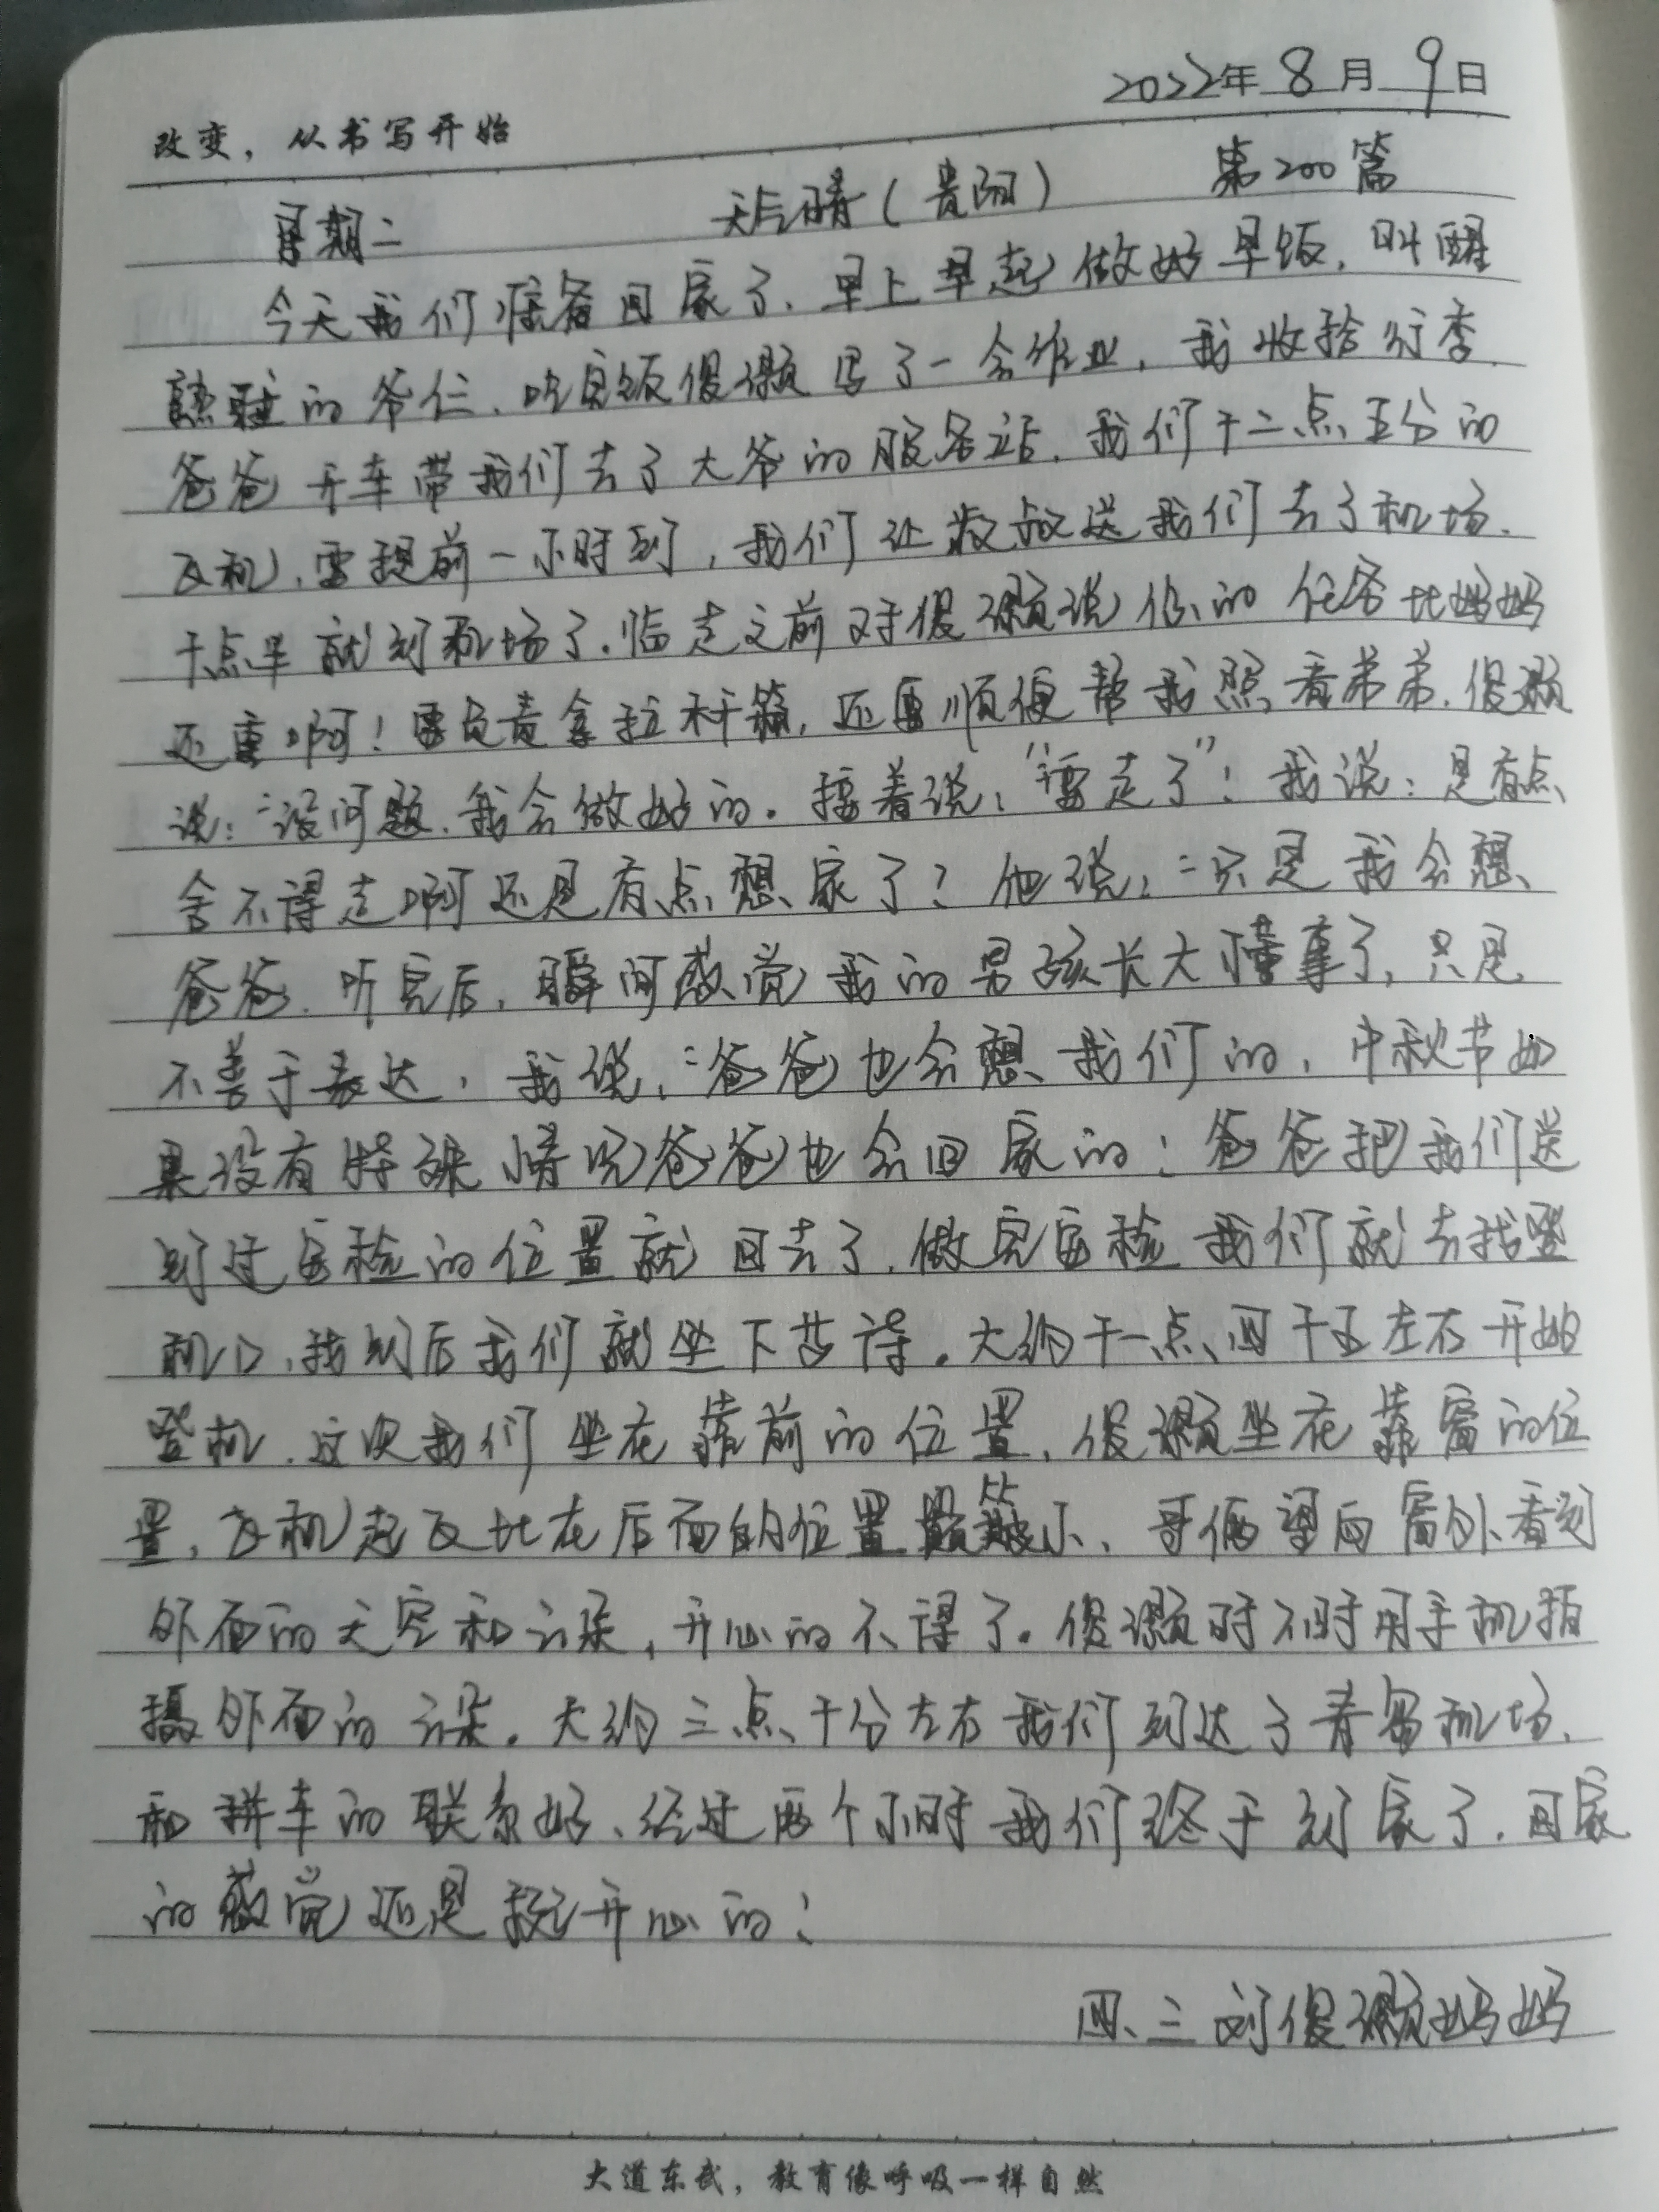 2022年 8 月 9 日
改变，从书写开始
星期二 天气晴（贵阳） 第200篇
今天我们准备回家了，早上早起做好早饭，叫醒
熟睡的爷仨，吃完饭俊灏写了一会作业，我收拾行李，
爸爸开车带我们去了大爷的服务站，我们十二点五分的
飞机，需提前一小时到，我们让叔叔送我们去了机场，
十点半就到机场了。临走之前对俊灏说你的任务比妈妈
还重啊！要负责拿拉杆箱，还要顺便帮我照看弟弟，俊灏
说：“没问题，我会做好的。接着说：“要走了”！我说：是有点
舍不得走啊还是有点想家了？他说：“只是我会想
爸爸，听完后，瞬间感觉我的男孩长大懂事了，只是
不善于表达，我说：“爸爸也会想我们的，中秋节如
果没有特殊情况爸爸也会回家的！爸爸把我们送
到过安检的位置就回去了，做完安检我们就去找登
机口，找到后我们就坐下等待。大约十一点四十五左右开始
登机，这次我们坐在靠前的位置，俊灏坐在靠窗的位
置，飞机起飞比在后面的位置颠簸小，哥俩望向窗外看到
外面的天空和云朵，开心的不得了。俊灏时不时用手机拍
摄外面的云朵。大约三点十分左右我们到达了青岛机场，
和拼车的联系好，经过两个小时我们终于到家了，回家
的感觉还是挺开心的！
四、三 刘俊灏妈妈
大道东武，教育像呼吸一样自然